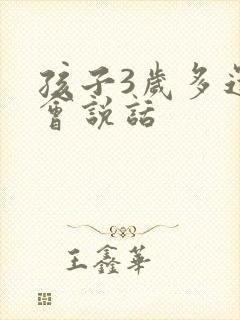 孩子3歲多還
會説話
王鑫華